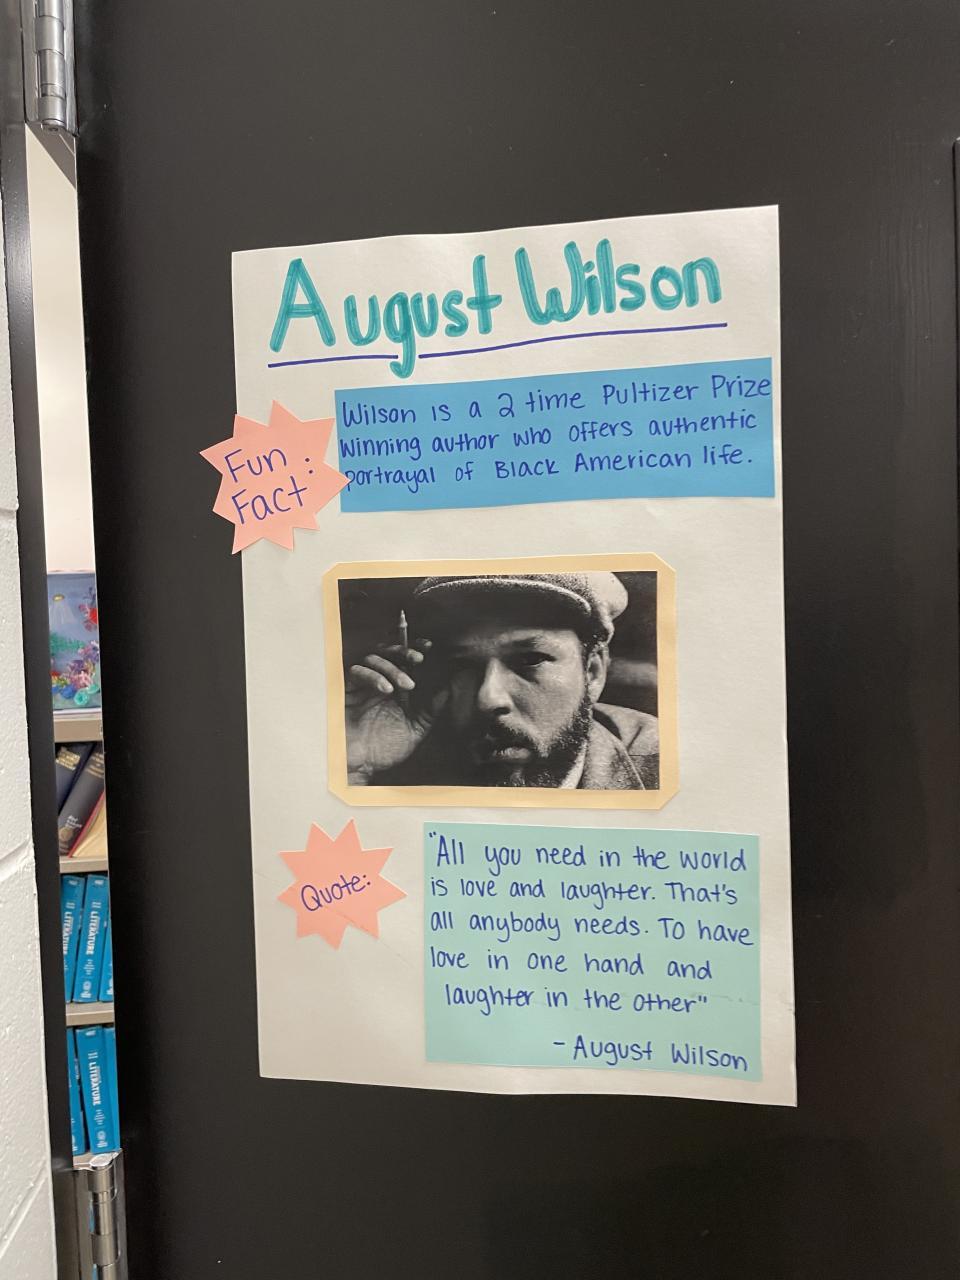 August Wilson
Fun :
Fact
Wilson is a 2 time Pultizer Prize
Winning author who offers authentic
portrayal of Black American life.
Quote:
"All you need in the world
is love and laughter. That's
all anybody needs. To have
love in one hand and
laughter in the other"
- August Wilson
LITERATURE
LITERATURE
LITERATURE